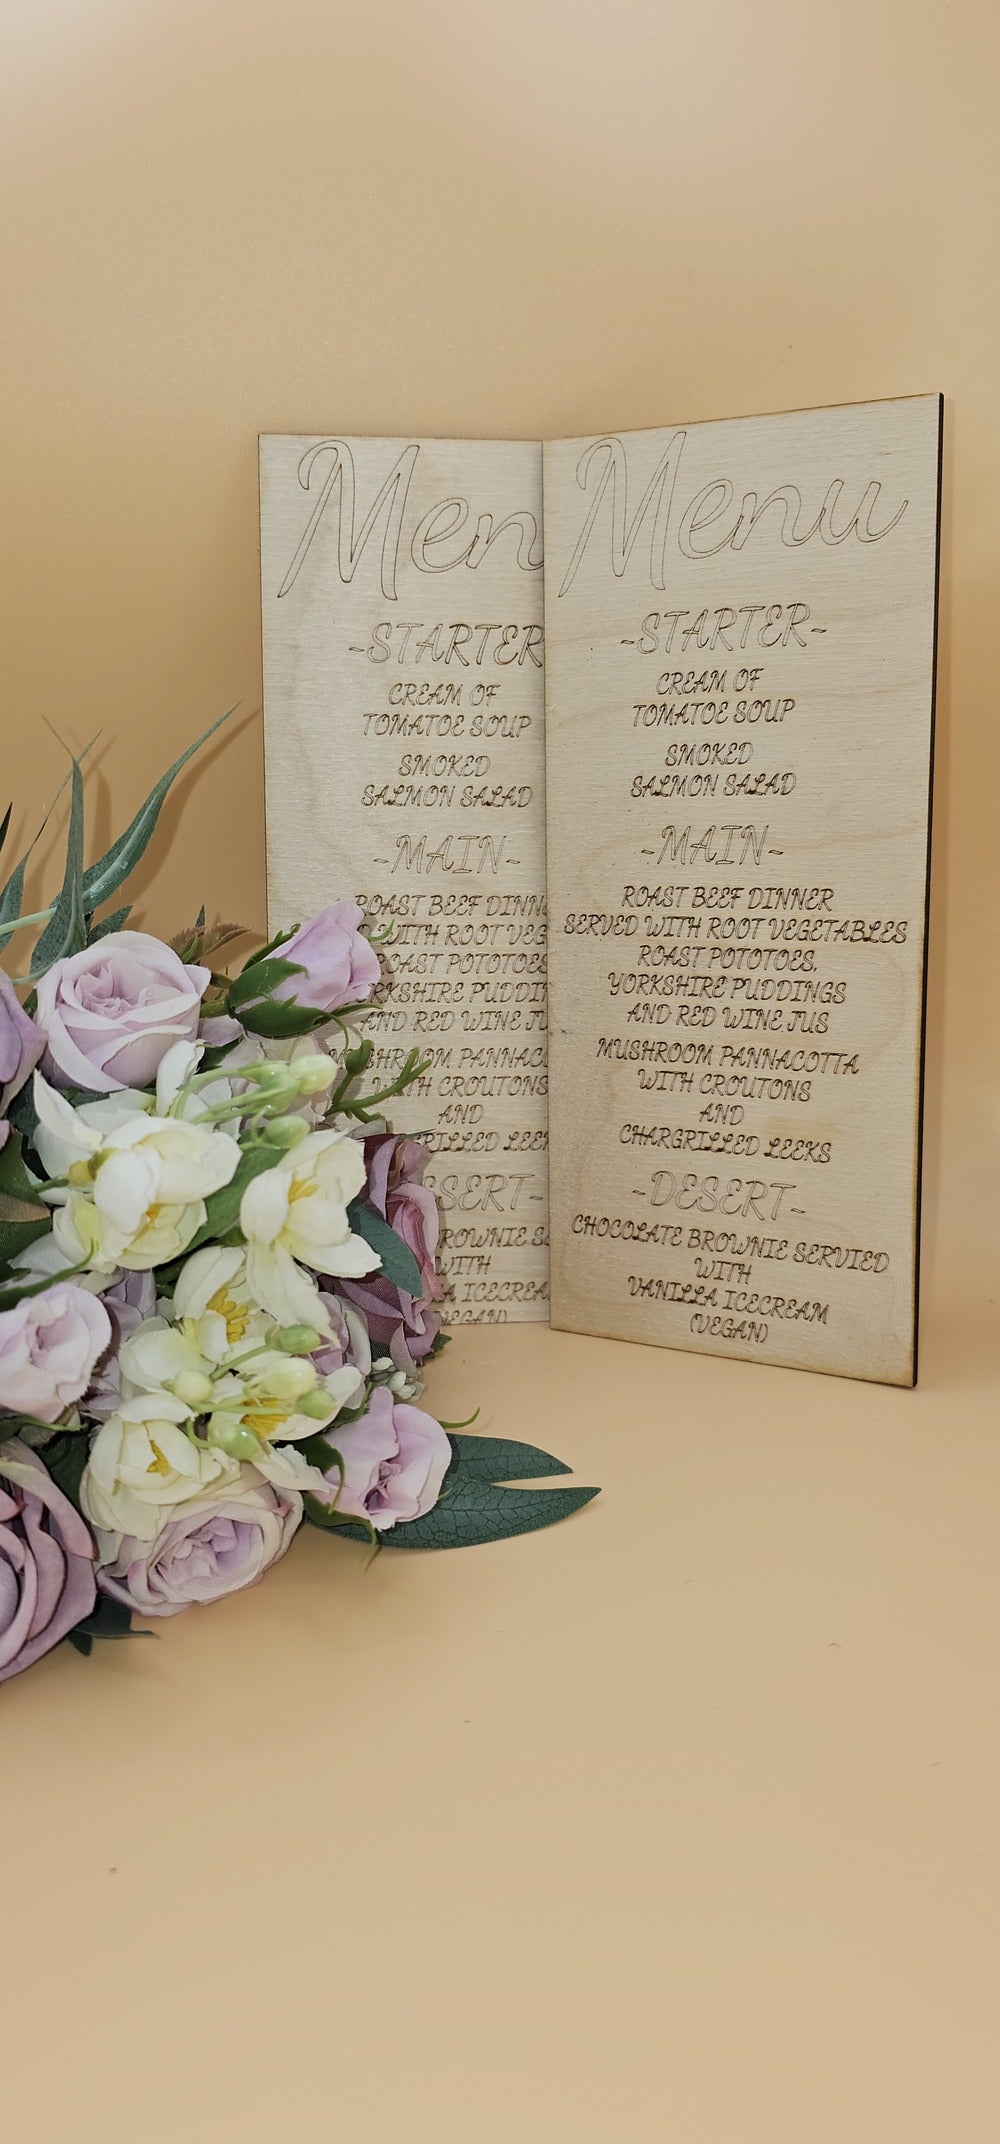 Men
-STARTER
CREAM OF
TOMATOE SOUP
SMOKED
SALMON SALAD
-MAIN-
ROAST BEEF DINN
WITH ROOT VEG
ROAST POTOTOES
RKSHIRE PUDDIN
AND RED WINE JU
MUSHROOM PANNACO
WITH CROUTONS
AND
RILLED LEEK
SSERT-
ROWNIE S
WITH
A ICECREA
(VEGAN)
Menu
-STARTER-
CREAM OF
TOMATOE SOUP
SMOKED
SALMON SALAD
-MAIN-
ROAST BEEF DINNER
SERVED WITH ROOT VEGETABLES
ROAST POTOTOES,
YORKSHIRE PUDDINGS
AND RED WINE JUS
MUSHROOM PANNACOTTA
WITH CROUTONS
AND
CHARGRILLED LEEKS
-DESERT-
CHOCOLATE BROWNIE SERVIED
WITH
VANILLA ICECREAM
(VEGAN)